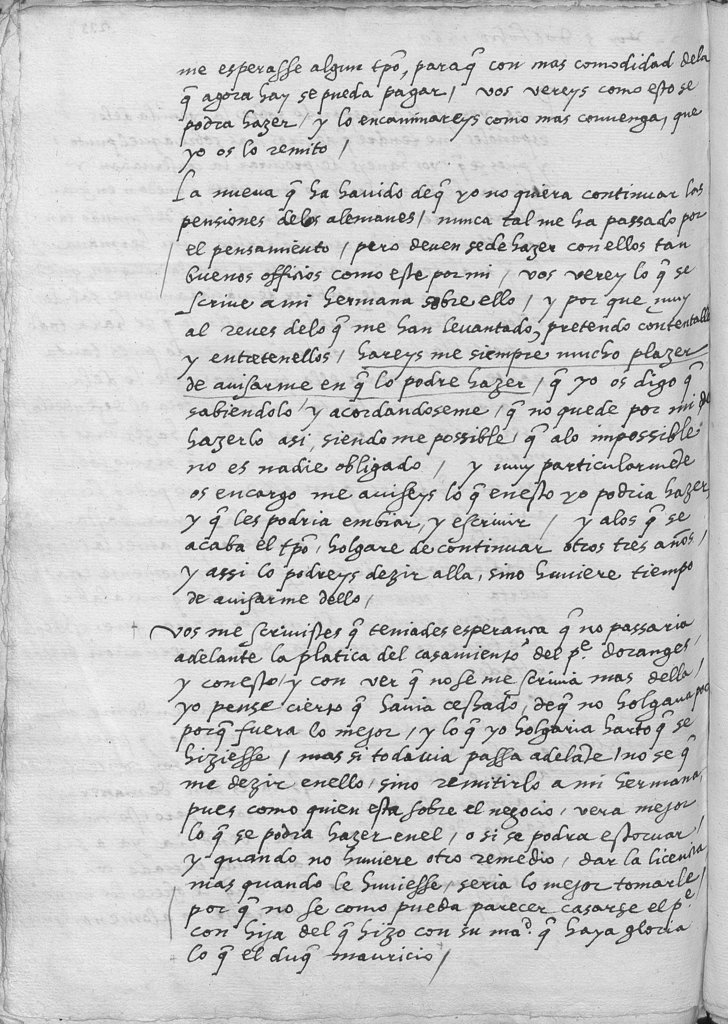 me esperasse algun tpõ, paraq̃ con mas comodidad dela
q̃ agora hay se pueda pagar / vos vereys como esto se
podra hazer / y lo encaminareys como mas conuenga, que
yo os lo remito /
La nueua q̃ ha hauido deq̃ yo no quiera continuar las
pensiones delos alemanes / nunca tal me ha passado por
el pensamiento / pero deuen sede hazer con ellos tan
buenos officios como este por mi / vos verey lo q̃ se
scriue a mi hermana sobre ello / y por que muy
al reues delo q̃ me han leuantado, pretendo contentalle
y entretenellos / hareys me siempre mucho plazer
de auisarme en q̃ lo podre hazer / q̃ yo os digo q̃
sabiendolo / y acordandoseme / q̃ no quede por mi de
hazerlo asi, siendo me possible / q̃ alo impossible
no es nadie obligado / y muy particularmẽte
os encargo me auiseys lo q̃ enesto yo podria hazer
y q̃ les podria embiar, y escriuir / y alos q̃ se
acaba el tpõ, holgare de continuar otros tres años /
y assi lo podreys dezir alla, sino huuiere tiempo
de auisarme dello /
vos me scriuistes q̃ teniades esperança q̃ no passaria
adelante la platica del casamiento del p.e doranges /
y con esto / y con ver q̃ no se me scriuia mas della /
yo pense cierto q̃ hauia cessado, deq̃ no holgaua poco
porq̃ fuera lo mejor / y lo q̃ yo holgaria harto q̃ se
hiziesse / mas si todauia passa adelãte / no se q̃
me dezir enello / sino remitirlo a mi hermana
pues como quien esta sobre el negocio / vera mejor
lo q̃ se podra hazer enel / o si se podra estoruar /
y quando no huuiere otro remedio / dar la licencia
mas quando le huuiesse, seria lo mejor tomarle /
por q̃ no se como pueda parecer casarse el p.e
con hija del q̃ hizo con su mad. q̃ haya gloria
lo q̃ el duq̃ mauricio /